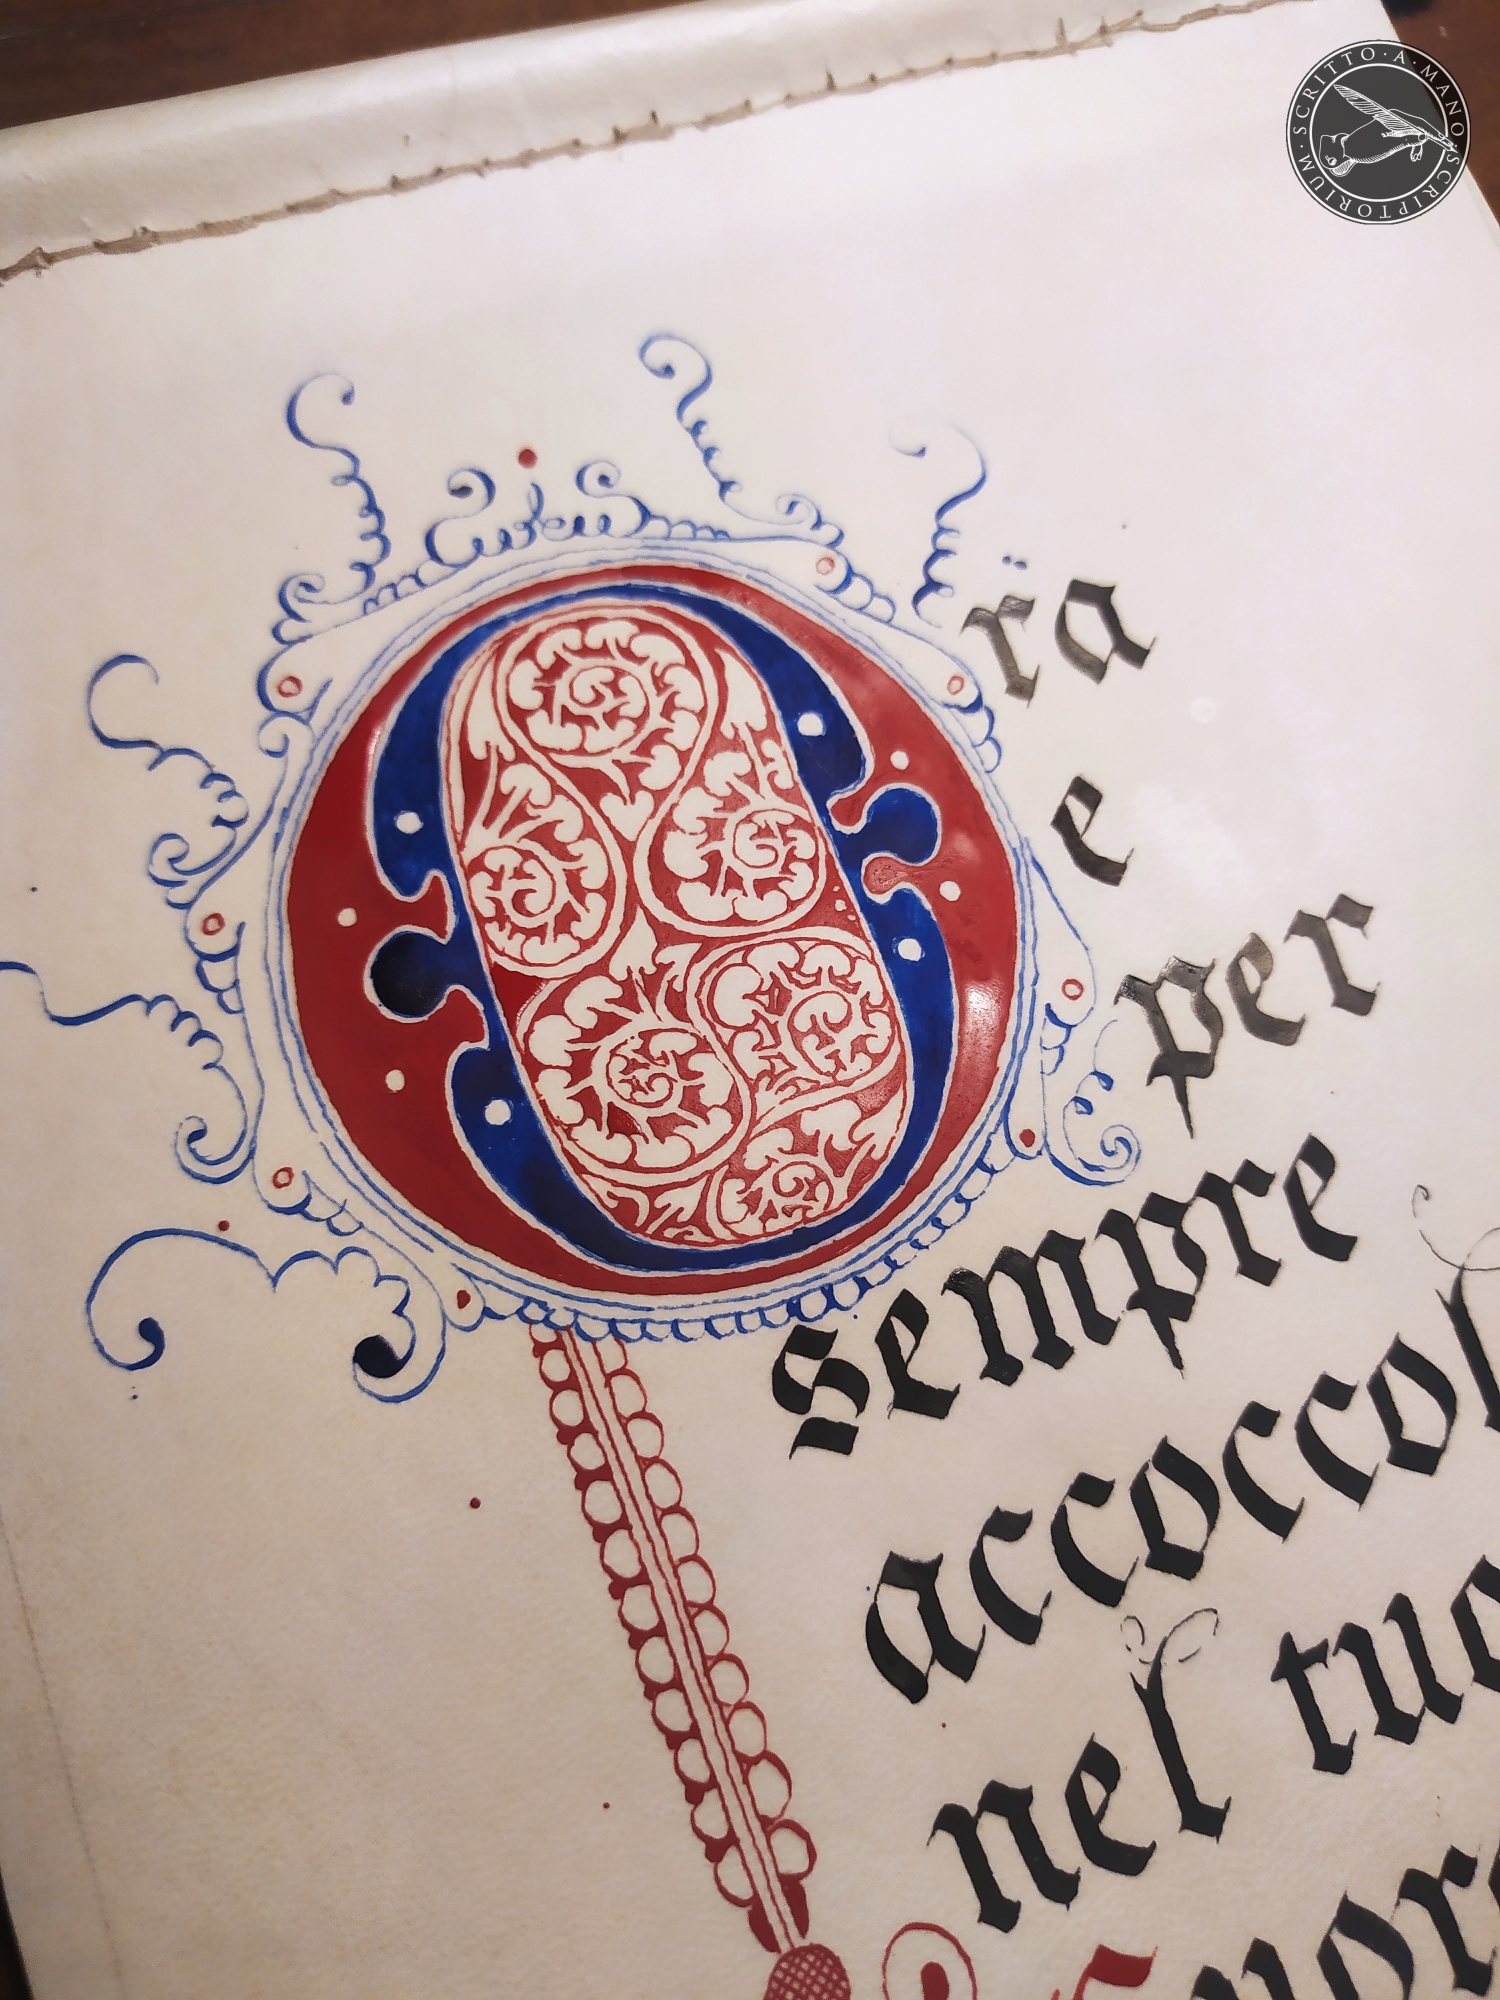 SCRITTO · A · MANO · SCRIPTORIUM ·
Ora
e
per
sempre
accoccol
nel tuo